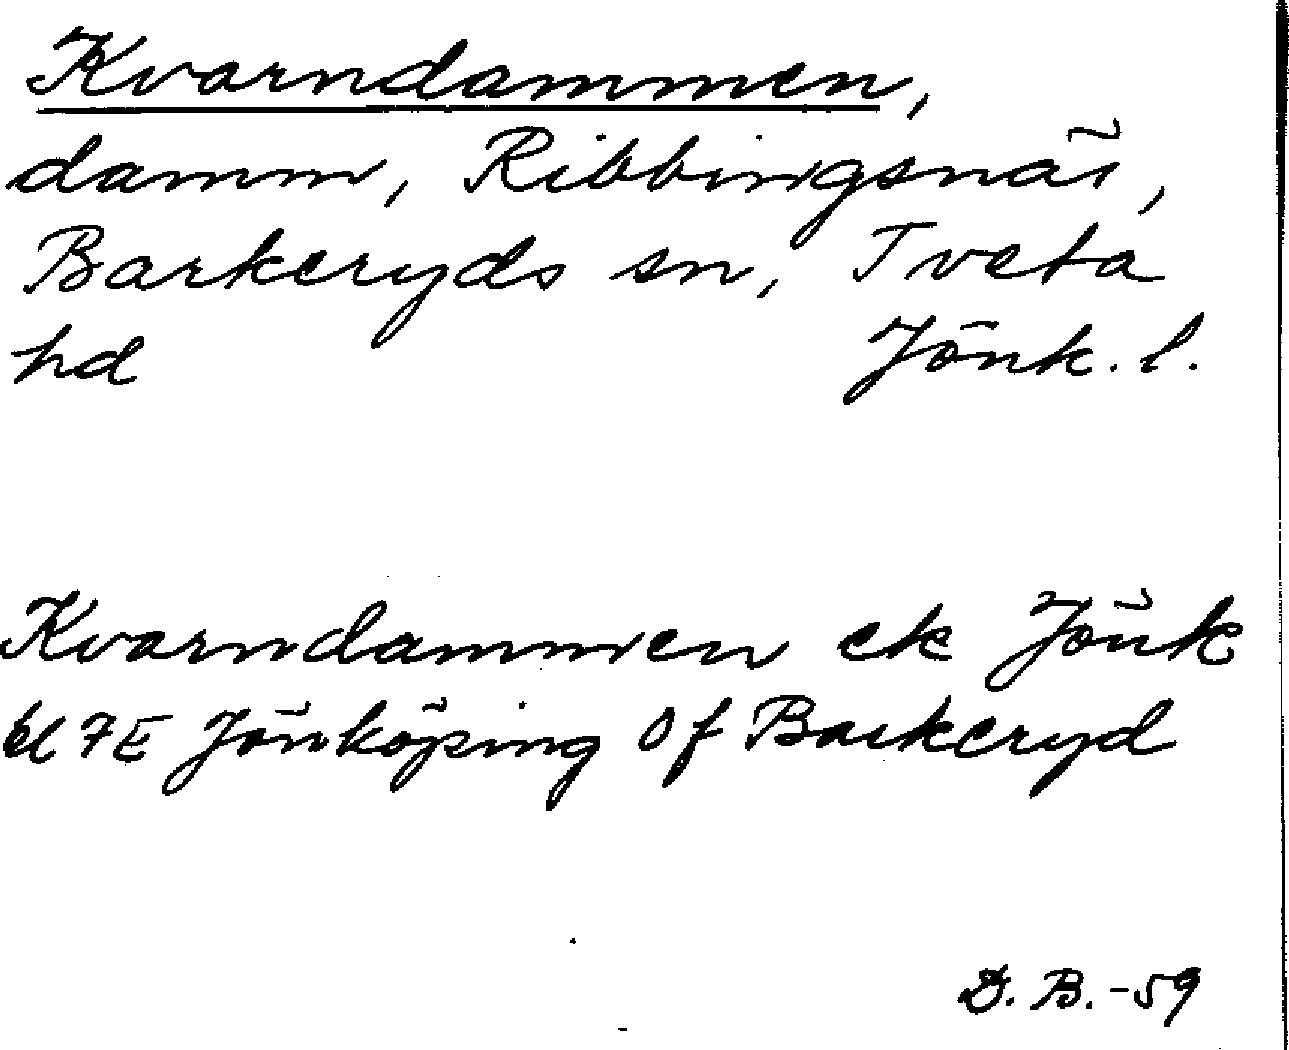 Kvarndammen,
damm, Ribbingsnäs,
Barkeryds sn, Tveta
hd Jönk. l.
Kvarndammen ek Jönk
bl 7E Jönköping Of Barkeryd
D. B. -59